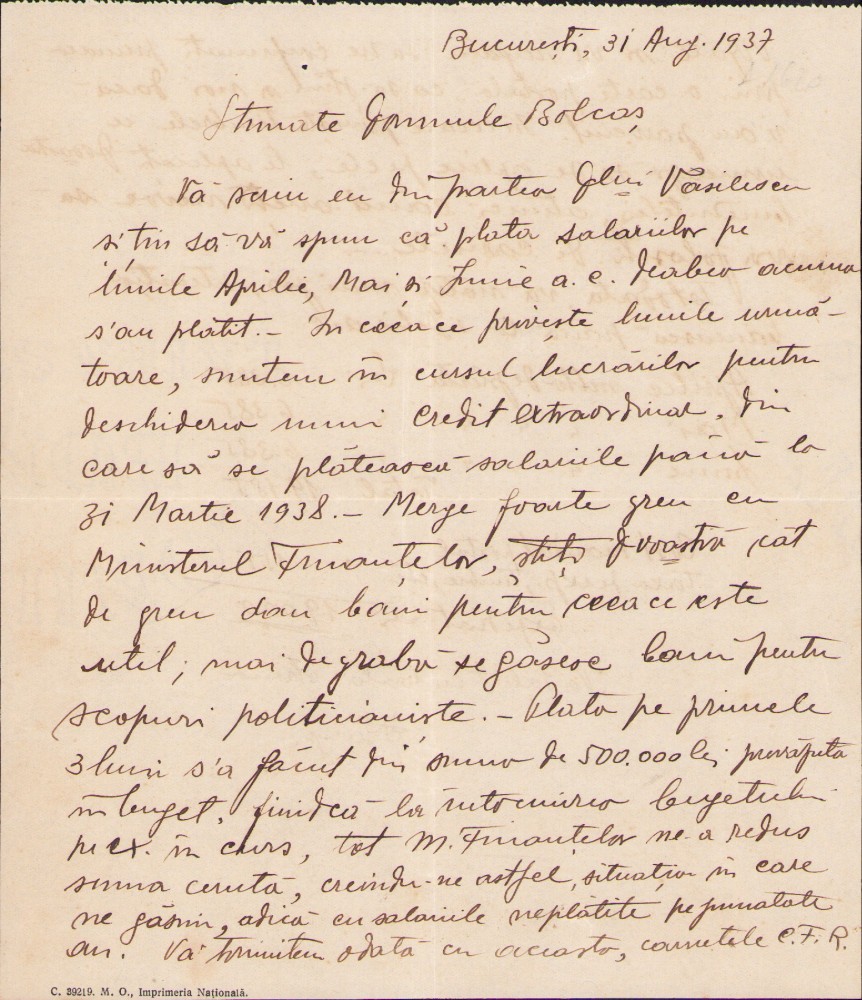 București, 31 Aug. 1937
Stimate Domnule Bolcaș
Vă scriu eu din partea Dlui Vasilescu
și țin să vă spun că plata salariilor pe
lunile Aprilie, Mai și Iunie a. c. deabea acuma
s'au plătit. – In ceeace privește lunile urmă-
toare, suntem în cursul lucrărilor pentru
deschiderea unui credit extraordinar, din
care să se plătească salariile până la
31 Martie 1938. – Merge foarte greu cu
Ministerul Finanțelor, știți Dvoastră cât
de greu dau bani pentru ceeace este
util; mai degrabă se găsesc bani pentru
scopuri politicianiste. – Plata pe primele
3 luni s'a făcut din suma de 500.000 lei prevăzută
în buget, fiindcă la întocmirea bugetului
pe ex. în curs, tot M. Finanțelor ne-a redus
suma cerută, creindu-ne astfel, situația în care
ne găsim, adică cu salariile neplătite pe jumatate
an. Vă trimitem odată cu aceasta, carnetele C. F. R.
C. 39219. M. O., Imprimeria Națională.